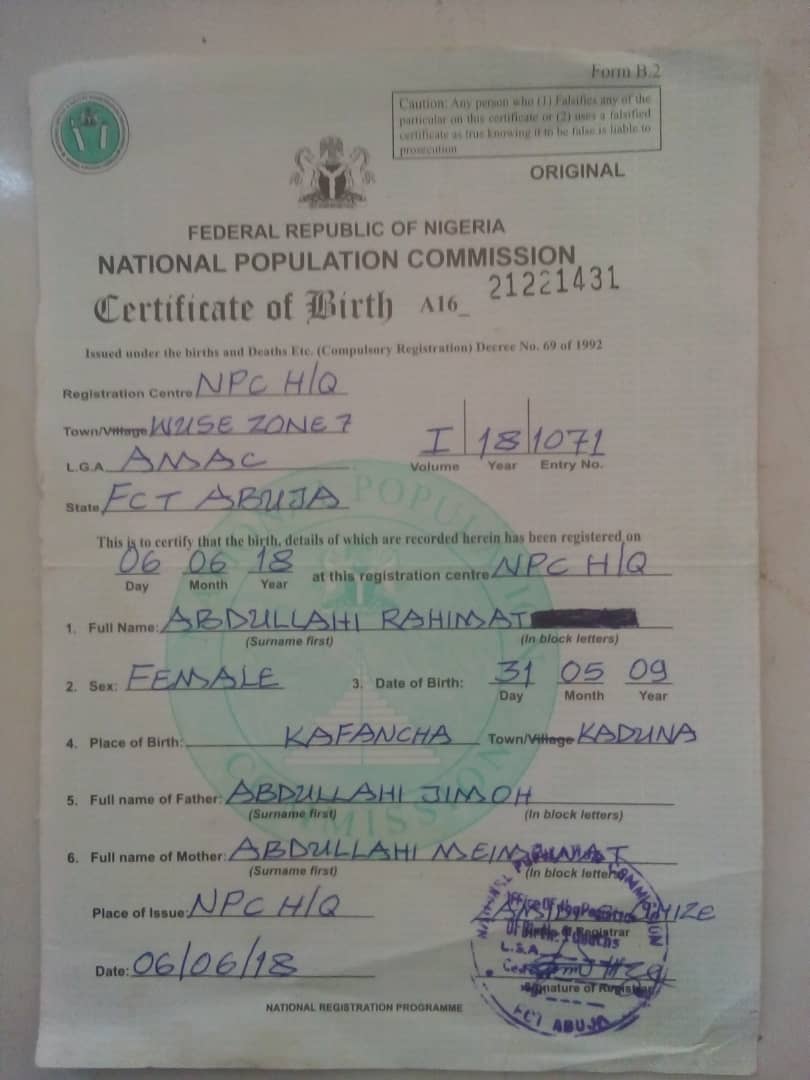 Form B.2
Caution: Any person who (1) Falsifies any of the
particular on this certificate or (2) uses a falsified
certificate as true knowing it to be false is liable to
prosecution
ORIGINAL
FEDERAL REPUBLIC OF NIGERIA
NATIONAL POPULATION COMMISSION
Certificate of Birth A16_ 21221431
Issued under the births and Deaths Etc. (Compulsory Registration) Decree No. 69 of 1992
Registration Centre NPC H/Q
Town/Village WUSE ZONE 7
I 18 1071
L.G.A. AMAC
Volume Year Entry No.
State FCT ABUJA
This is to certify that the birth, details of which are recorded herein has been registered on
06 06 18 at this registration centre NPC H/Q
Day Month Year
1. Full Name: ABDULLAHI RAHIMAT
(Surname first) (In block letters)
2. Sex: FEMALE 3. Date of Birth: 31 05 09
Day Month Year
4. Place of Birth: KAFANCHA Town/Village KADUNA
5. Full name of Father: ABDULLAHI JIMOH
(Surname first) (In block letters)
6. Full name of Mother: ABDULLAHI
(Surname first) (In block letters)
Place of Issue: NPC H/Q
Registrar
L.G.A.
Date: 06/06/18
Signature of Registrar
FCT ABUJA
NATIONAL REGISTRATION PROGRAMME